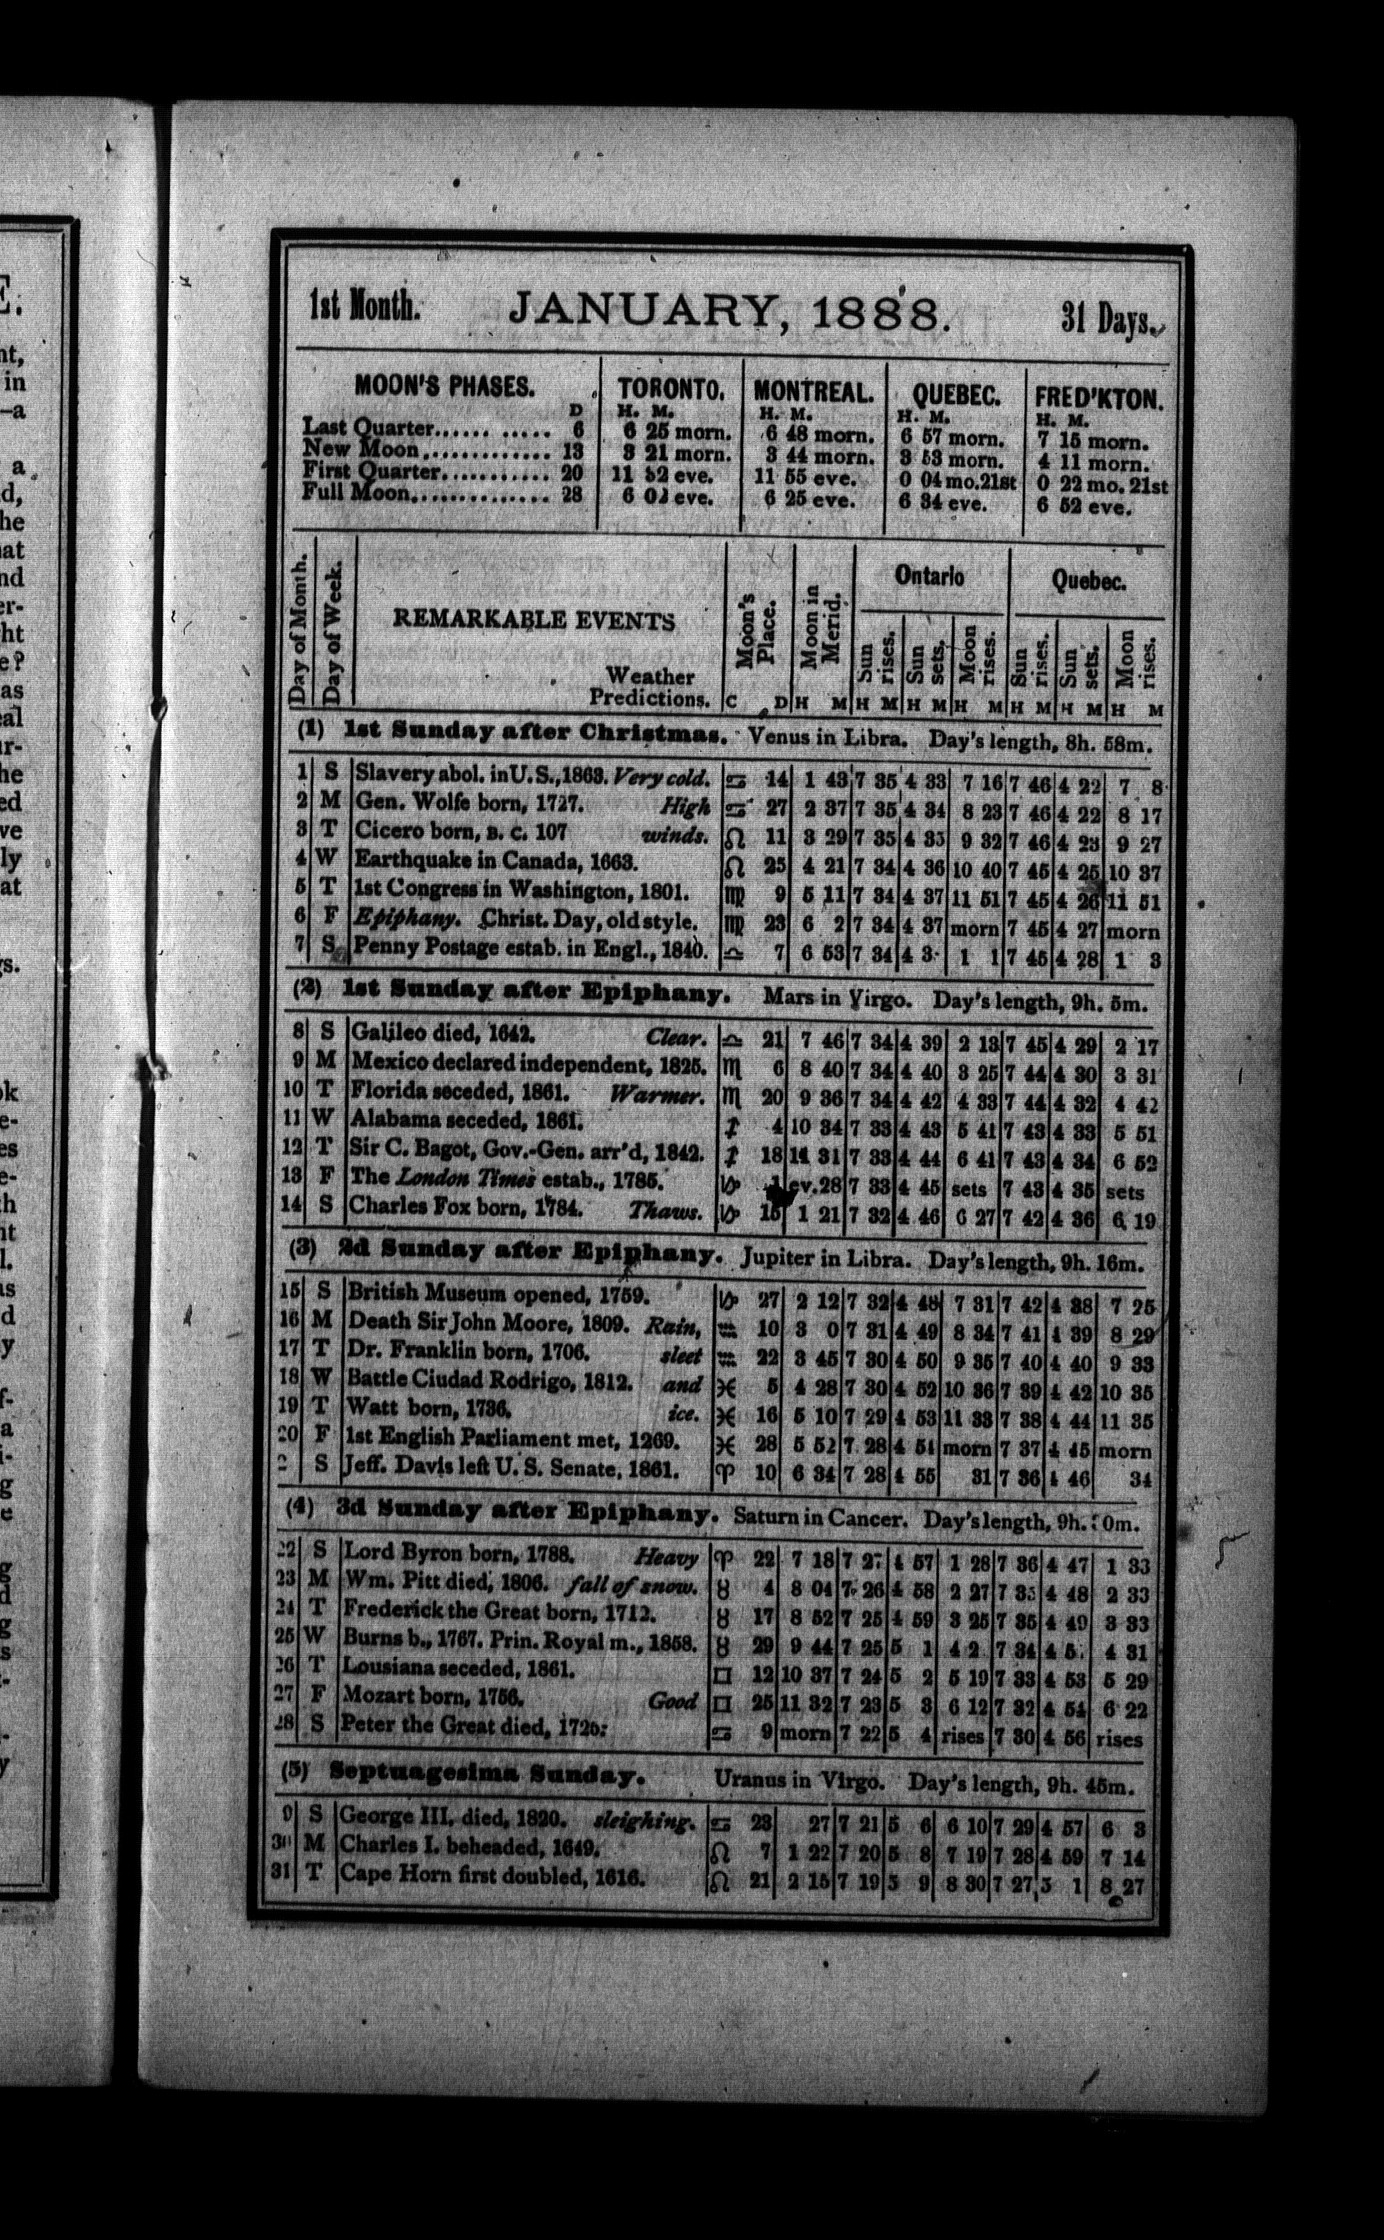 1st Month. JANUARY, 1888. 31 Days.
MOON'S PHASES. TORONTO. MONTREAL. QUEBEC. FRED'KTON.
D H. M. H. M. H. M. H. M.
Last Quarter...... ..... 6 6 25 morn. 6 48 morn. 6 57 morn. 7 15 morn.
New Moon............. 13 3 21 morn. 3 44 morn. 3 53 morn. 4 11 morn.
First Quarter........... 20 11 32 eve. 11 55 eve. 0 04 mo.21st 0 22 mo. 21st
Full Moon.............. 28 6 02 eve. 6 25 eve. 6 34 eve. 6 52 eve.
Day of Month. Day of Week. REMARKABLE EVENTS Weather Predictions. Moon's Place. Moon in Merid. Ontario Quebec.
Sun rises. Sun sets. Moon rises. Sun rises. Sun sets. Moon rises.
C D H M H M H M H M H M H M H M
(1) 1st Sunday after Christmas. Venus in Libra. Day's length, 8h. 58m.
1 S Slavery abol. in U.S., 1863. Very cold. ♋ 14 1 43 7 35 4 33 7 16 7 46 4 22 7 8
2 M Gen. Wolfe born, 1727. High ♋ 27 2 37 7 35 4 34 8 23 7 46 4 22 8 17
3 T Cicero born, B. C. 107 winds. ♌ 11 3 29 7 35 4 35 9 32 7 46 4 23 9 27
4 W Earthquake in Canada, 1663. ♌ 25 4 21 7 34 4 36 10 40 7 45 4 25 10 37
5 T 1st Congress in Washington, 1801. ♍ 9 5 11 7 34 4 37 11 51 7 45 4 26 11 51
6 F Epiphany. Christ. Day, old style. ♍ 23 6 2 7 34 4 37 morn 7 45 4 27 morn
7 S Penny Postage estab. in Engl., 1840. ♎ 7 6 53 7 34 4 3 1 1 7 45 4 28 1 3
(2) 1st Sunday after Epiphany. Mars in Virgo. Day's length, 9h. 5m.
8 S Galileo died, 1642. Clear. ♎ 21 7 46 7 34 4 39 2 13 7 45 4 29 2 17
9 M Mexico declared independent, 1825. ♏ 6 8 40 7 34 4 40 3 25 7 44 4 30 3 31
10 T Florida seceded, 1861. Warmer. ♏ 20 9 36 7 34 4 42 4 33 7 44 4 32 4 42
11 W Alabama seceded, 1861. ♐ 4 10 34 7 33 4 43 5 41 7 43 4 33 5 51
12 T Sir C. Bagot, Gov.-Gen. arr'd, 1842. ♐ 18 11 31 7 33 4 44 6 41 7 43 4 34 6 52
13 F The London Times estab., 1785. ♑ 1 ev.28 7 33 4 45 sets 7 43 4 35 sets
14 S Charles Fox born, 1784. Thaws. ♑ 15 1 21 7 32 4 46 6 27 7 42 4 36 6 19
(3) 2d Sunday after Epiphany. Jupiter in Libra. Day's length, 9h. 16m.
15 S British Museum opened, 1759. ♑ 27 2 12 7 32 4 48 7 31 7 42 4 38 7 25
16 M Death Sir John Moore, 1809. Rain, ♒ 10 3 0 7 31 4 49 8 34 7 41 4 39 8 29
17 T Dr. Franklin born, 1706. sleet ♒ 22 3 45 7 30 4 50 9 35 7 40 4 40 9 33
18 W Battle Ciudad Rodrigo, 1812. and ♓ 5 4 28 7 30 4 52 10 36 7 39 4 42 10 35
19 T Watt born, 1736. ice. ♓ 16 5 10 7 29 4 53 11 33 7 38 4 44 11 35
20 F 1st English Parliament met, 1269. ♓ 28 5 52 7 28 4 54 morn 7 37 4 45 morn
S Jeff. Davis left U. S. Senate, 1861. ♈ 10 6 34 7 28 4 55 31 7 36 4 46 34
(4) 3d Sunday after Epiphany. Saturn in Cancer. Day's length, 9h. 0m.
22 S Lord Byron born, 1788. Heavy ♈ 22 7 18 7 27 4 57 1 28 7 36 4 47 1 33
23 M Wm. Pitt died, 1806. fall of snow. ♉ 4 8 04 7 26 4 58 2 27 7 35 4 48 2 33
24 T Frederick the Great born, 1712. ♉ 17 8 52 7 25 4 59 3 25 7 35 4 49 3 33
25 W Burns b., 1767. Prin. Royal m., 1858. ♉ 29 9 44 7 25 5 1 4 2 7 34 4 5 4 31
26 T Lousiana seceded, 1861. ♊ 12 10 37 7 24 5 2 5 19 7 33 4 53 5 29
27 F Mozart born, 1756. Good ♊ 25 11 32 7 23 5 3 6 12 7 32 4 54 6 22
28 S Peter the Great died, 1725. ♋ 9 morn 7 22 5 4 rises 7 30 4 56 rises
(5) Septuagesima Sunday. Uranus in Virgo. Day's length, 9h. 45m.
9 S George III. died, 1820. sleighing. ♋ 23 27 7 21 5 6 6 10 7 29 4 57 6 3
30 M Charles I. beheaded, 1649. ♌ 7 1 22 7 20 5 8 7 19 7 28 4 59 7 14
31 T Cape Horn first doubled, 1616. ♌ 21 2 15 7 19 5 9 8 30 7 27 5 1 8 27